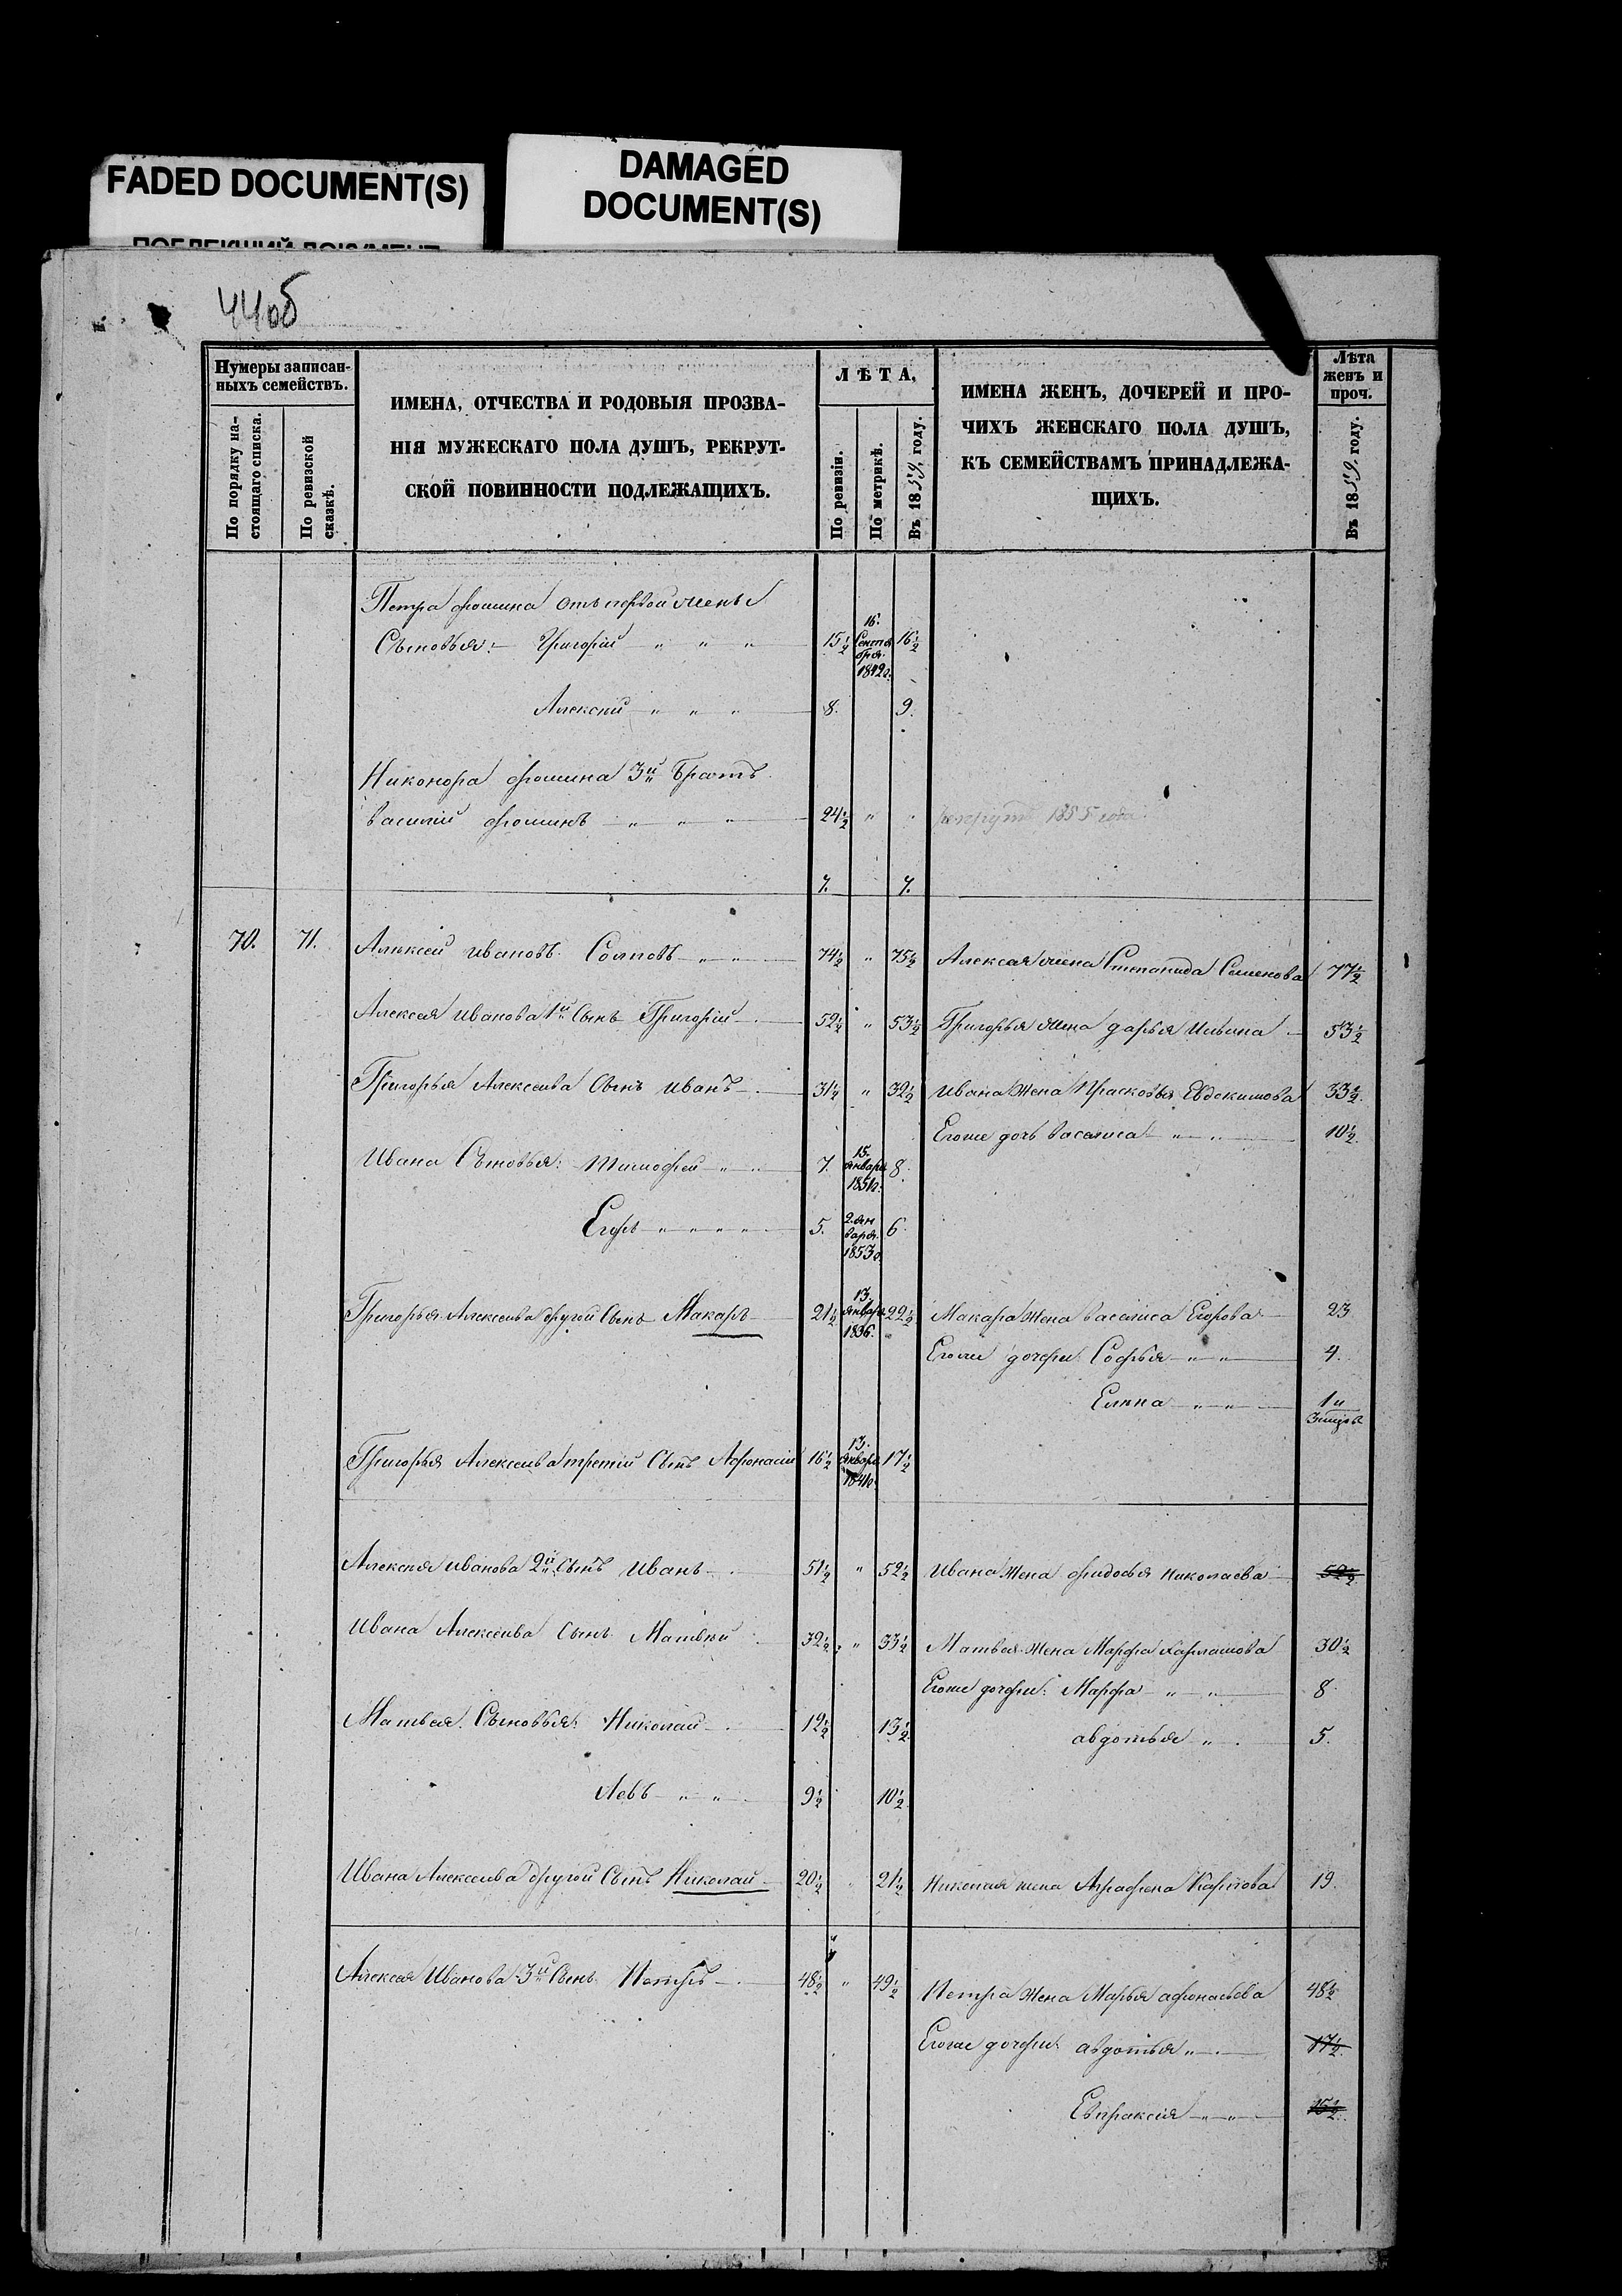 FADED DOCUMENT(S)
DAMAGED
DOCUMENT(S)
44об
Нумеры записан-
ныхъ семействъ.
По порядку на-
стоящаго списка.
По ревизской
сказкѣ.
ИМЕНА, ОТЧЕСТВА И РОДОВЫЯ ПРОЗВА-
НІЯ МУЖЕСКАГО ПОЛА ДУШЪ, РЕКРУТ-
СКОЙ ПОВИННОСТИ ПОДЛЕЖАЩИХЪ.
ЛѢТА,
По ревизіи.
По метрикѣ.
Въ 1859 году.
ИМЕНА ЖЕНЪ, ДОЧЕРЕЙ И ПРО-
ЧИХЪ ЖЕНСКАГО ПОЛА ДУШЪ,
КЪ СЕМЕЙСТВАМЪ ПРИНАДЛЕЖА-
ЩИХЪ.
Лѣта
женъ и
проч.
Въ 1859 году.
Петра Фомина отъ первой жены
Сыновья: Григорій " " " 15½ 16. Сентября 1842г. 16½
Алексѣй " " " 8. 9.
Никонора Фомина 3й Братъ
Василій Фоминъ " " " 24½ " " рекрутъ 1855 года
7. 7.
70. 71. Алексѣй Ивановъ " " 74½ " 75½ Алексея жена Степанида Семенова 77½
Алексея Иванова 1й Сынъ Григорій 52½ " 53½ Григорья жена Дарья Ильина 53½
Григорья Алексеева Сынъ Иванъ 31½ " 32½ Ивана жена Прасковья Евдокимова 33½
Егоже дочь Василиса " " 10½
Ивана Сыновья: Тимофей " " 7. 15. Января 1851г. 8.
Егоръ " " " " 5. 2. Января 1853г. 6.
Григорья Алексеева другой Сынъ Макаръ 21½ 13. Января 1836. 22½ Макара жена Василиса Егорова 23
Егоже дочери Софья " " 4.
Елена " " 1 и
3 мѣсяца
Григорья Алексеева третій Сынъ Афонасій 16½ 13. Января 1841г. 17½
Алексея Иванова 2й Сынъ Иванъ 51½ " 52½ Ивана жена Федосья Николаева 52½
Ивана Алексеева Сынъ Матвѣй 32½ " 33½ Матвея жена Марфа 30½
Егоже дочери: Марфа " " 8
Матвея Сыновья: Николай 12½ 13½ Авдотья " 5.
Левъ " " 9½ 10½
Ивана Алексеева другой Сынъ Николай 20½ 21½ Николая жена Аграфена Карпова 19.
Алексея Иванова 3й Сынъ Петръ 48½ " 49½ Петра жена Марья Афонасьева 48½
Егоже дочери Авдотья " 17½
Евпраксія " " 15½